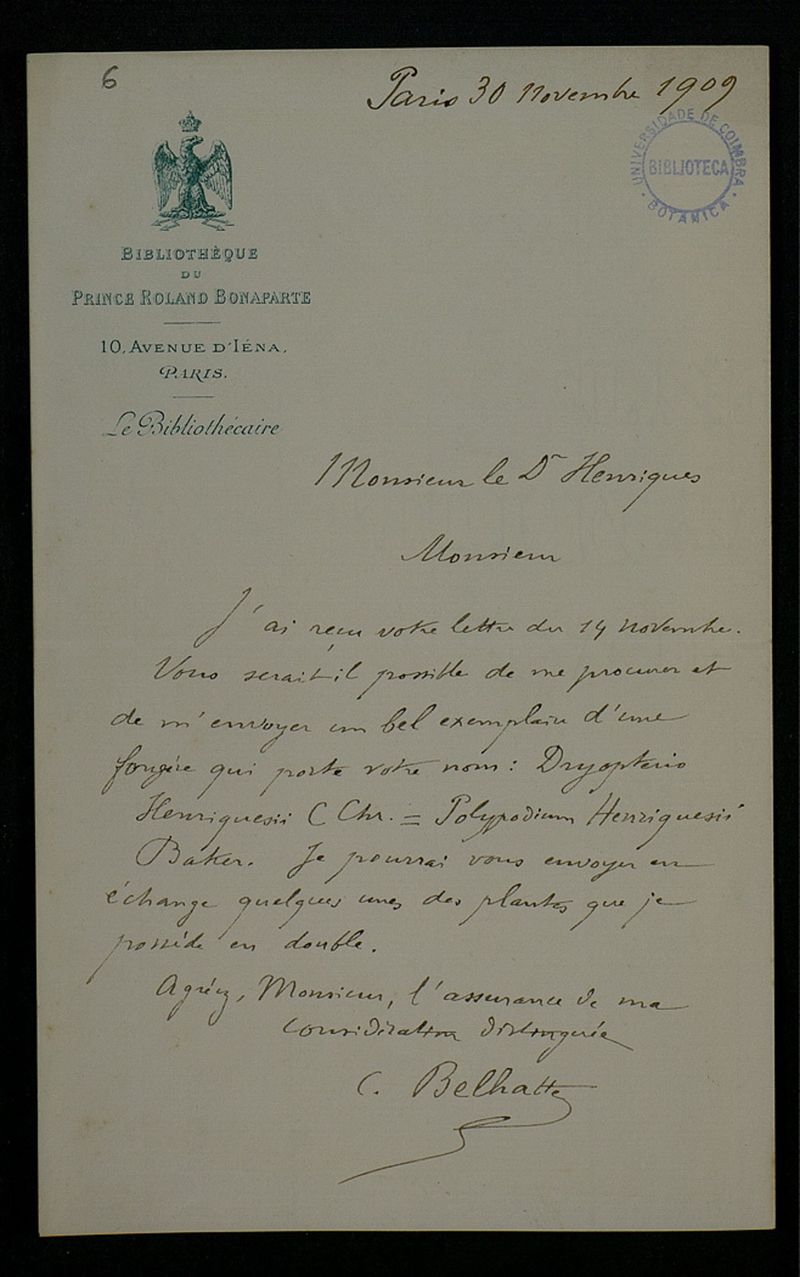 6
Paris 30 novembre 1909
UNIVERSIDADE DE COIMBRA
BIBLIOTECA
BOTANICA
BIBLIOTHÈQUE
DU
PRINCE ROLAND BONAPARTE
10, AVENUE D'IÉNA,
PARIS.
Le Bibliothécaire
Monsieur le Dr Henriques
Monsieur
J'ai reçu votre lettre du 14 novembre.
Vous serait-il possible de me procurer et
de m'envoyer un bel exemplaire d'une
fougère qui porte votre nom : Dryopteris
Henriquesii C Chr. = Polypodium Henriquesii
Baker. Je pourrai vous envoyer en
échange quelques unes des plantes que je
possède en double.
Agréez, Monsieur, l'assurance de ma
considération distinguée
C. Belhatte